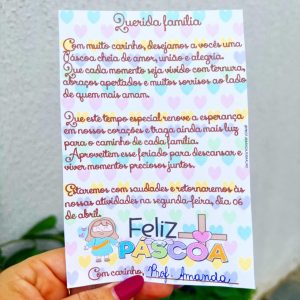 Querida família
Com muito carinho, desejamos a vocês uma
Páscoa cheia de amor, união e alegria.
Que cada momento seja vivido com ternura,
abraços apertados e muitos sorrisos ao lado
de quem mais amam.
Que este tempo especial renove a esperança
em nossos corações e traga ainda mais luz
para o caminho de cada família.
Aproveitem esse feriado para descansar e
viver momentos preciosos juntos.
Estaremos com saudades e retornaremos às
nossas atividades na segunda-feira, dia 06
de abril.
Feliz
PÁSCOA
Com carinho, Prof. Amanda